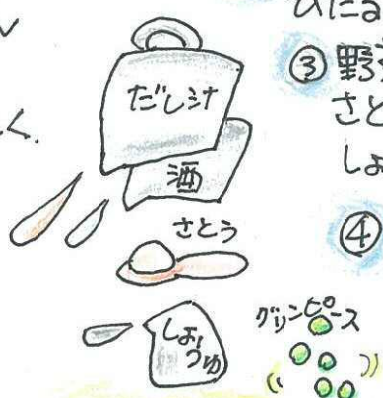 だし汁
酒
さとう
しょうゆ
グリンピース
③野
さと
しょ
④